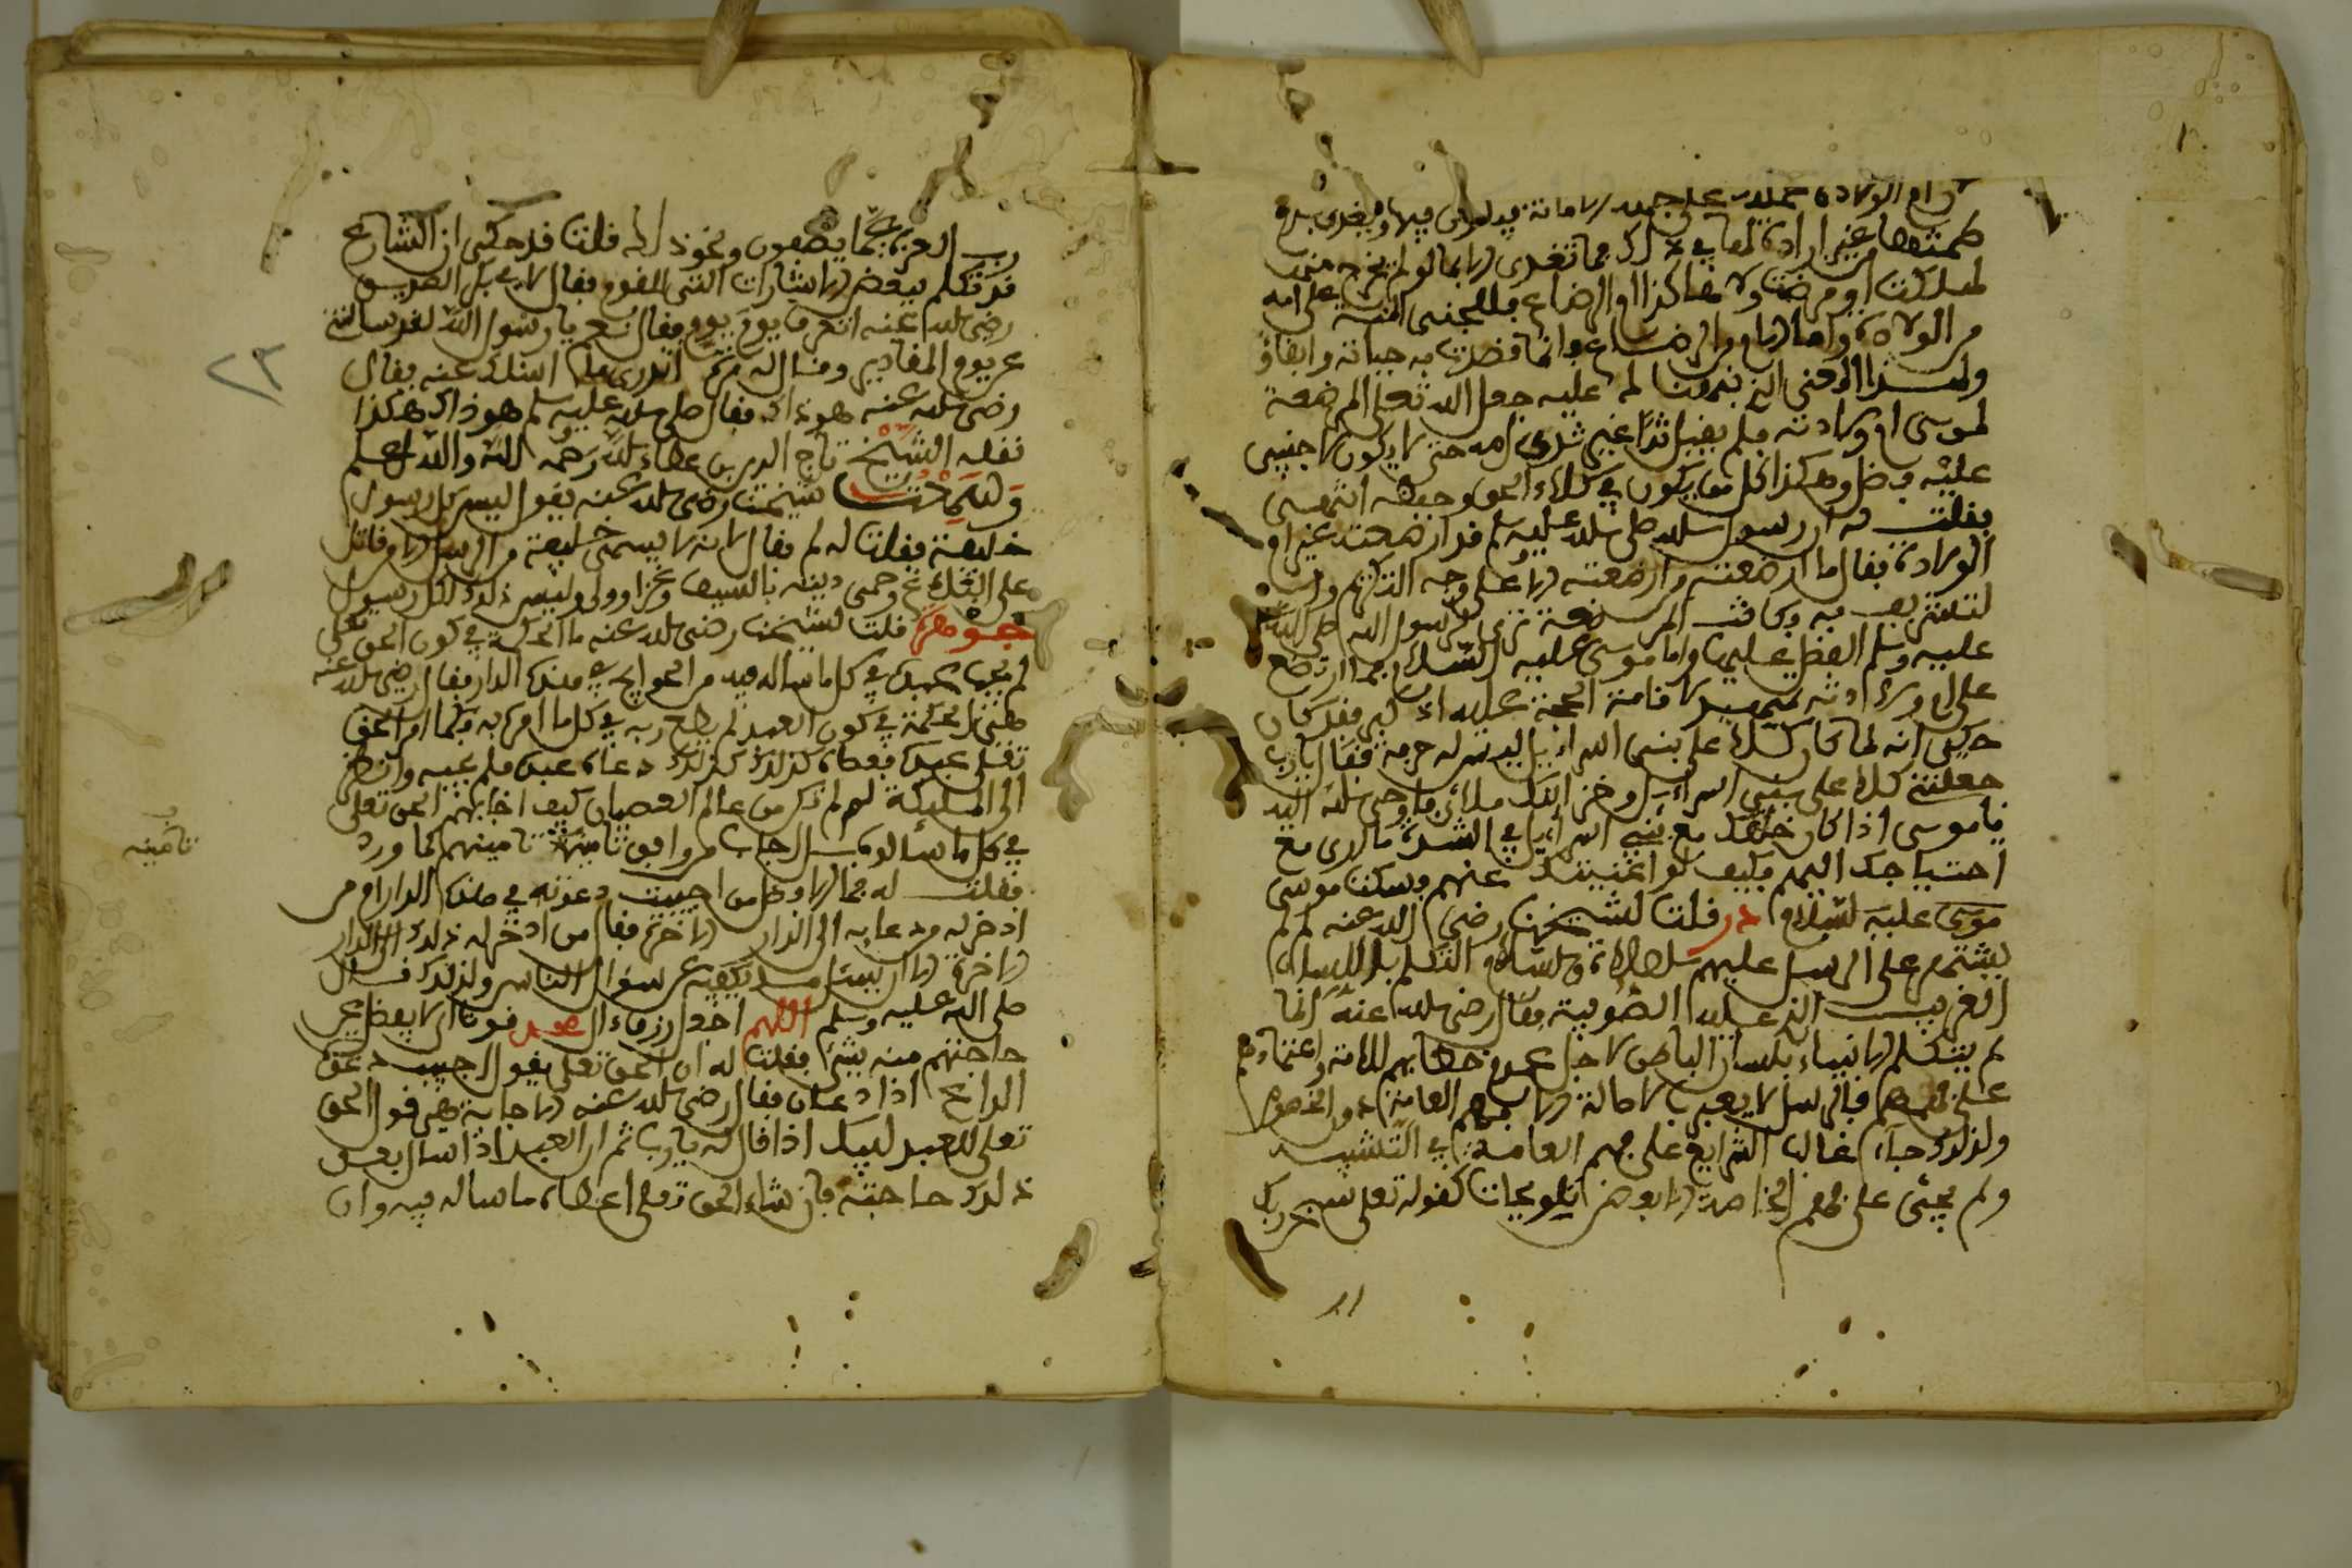 وام الولادة حملته على جهة الامانة فيه فتكون فيها وتغذى بدم
طمثها من غير ارادة لها في ذلك فما تغذى الا بما لو لم يخرج منها
لهلكت او مرضت ولا هكذا ام الرضاع فللجنين المنة على امه
من الولادة واما ام الرضاع فانما قصدت به حياته وابقاؤه
ولهذا المعنى الذي نبهنا عليه جعل الله تعلى المرضعة
لموسى ام ولادته فلم يقبل ثديا غير ثدي امه حتى لا يكون لاجنبي
عليه فضل وهكذا كل من يكون في كلاءة الحق وحفظه انتهى
فقلت له ان رسول الله صلى الله عليه وسلم قد ارضعته غير ام
الولادة فقال ما ارضعته من ارضعته الا على وجه التكرم وان
لتتشرف به وكانت المرضعة ترى لرسول الله صلى الله
عليه وسلم الفضل عليها واما موسى عليه السلام فما ارتضع
على ام ولادته لاقامة الحجة عليه اذ كبر فقد كان
حكي انه لما كان كلا على بني اسراءيل ليس له حرمة فقال يا رب
جعلتني كلا على بني اسراءيل وخزائنك ملائى فاوحى الله اليه
يا موسى اذا كان خلقك مع بني اسراءيل في الشدة ما ارى مع
احتياجك اليهم فكيف لو اغنيتك عنهم فسكت موسى
موسى عليه السلام در قلت لشيخنا رضي الله عنه لم لم
يشتهر على الرسل عليهم الصلاة والسلام التكلم باللسان
الغريب الذي عليه الصوفية فقال رضي الله عنه انما
لم يتكلم الانبياء بلسان الباطن لاجل عموم خطابهم للامة واعتمادهم
على فهمهم فالرسل لا يعبرون بالاصالة الا بفهم العامة دون الخصوص
ولذلك جاءت غالب الشرايع على فهم العامة في التشبيه
ولم يجئ على فهم الخاصة الا بعض تلويحات كقوله تعلى سبحن ربك
رب العزة عما يصفون ونحو ذلك قلت قد حكى ان الشارع
قد تكلم ببعض الاشارات التي للقوم فقال لابي بكر الصديق
رضي الله عنه اتعرف يوم يوم فقال نعم يا رسول الله لقد سالتني
عن يوم المقادير وقال له مرة اتدري ما اسئلك عنه فقال
رضي الله عنه هو ذاك فقال صلى الله عليه وسلم هو ذاك هكذا
نقله الشيخ تاج الدين بن عطاء الله رحمه الله والله اعلم
وسمعت شيخنا رضي الله عنه يقول ليس كل رسول
خليفة فقلت له لم فقال لانه لا يسمى خليفة من الرسل الا من قاتل
على البلاغ وحمى دينه بالسيف وعزل وولى وليس ذلك لكل رسول
جوهرة قلت لشيخنا رضي الله عنه ما الحكمة في كون الحق تعلى
لم يجب عبده في كل ما ساله فيه من الحوايج في هذه الدار فقال رضي الله عنه
هي الحكمة في كون العبد لم يطع ربه في كل ما امره به فكما امر الحق
تعلى عبده فعصاه كذلك كذلك دعاه عبده فلم يجبه وانظر
الى الملئكة لم لم تكن من عالم العصيان كيف اجابهم الحق تعلى
في كل ما سألوه بل اجاب من وافق تأمينه تأمينهم كما ورد
فقلت له فما الافضل من اجيبت دعوته في هذه الدار ام من
ادخر له دعاءه الى الدار الاخرة فقال من ادخر له ذلك الى الدار
الاخرة الا ان يسئل ما يكفيه عن سؤال الناس ولذلك قال
صلى الله عليه وسلم اللهم اجعل رزق ءال محمد قوتا اي لا يفضل عن
حاجتهم منه شيئا فقلت له ان الحق تعلى يقول اجيب دعوة
الداع اذا دعان فقال رضي الله عنه الاجابة هي قول الحق
تعلى للعبد لبيك اذا قال له يا رب ثم ان العبد اذا سال بعد
ذلك حاجته فان شاء الحق تعلى اعطاه ما ساله فيه وان
تأمينه